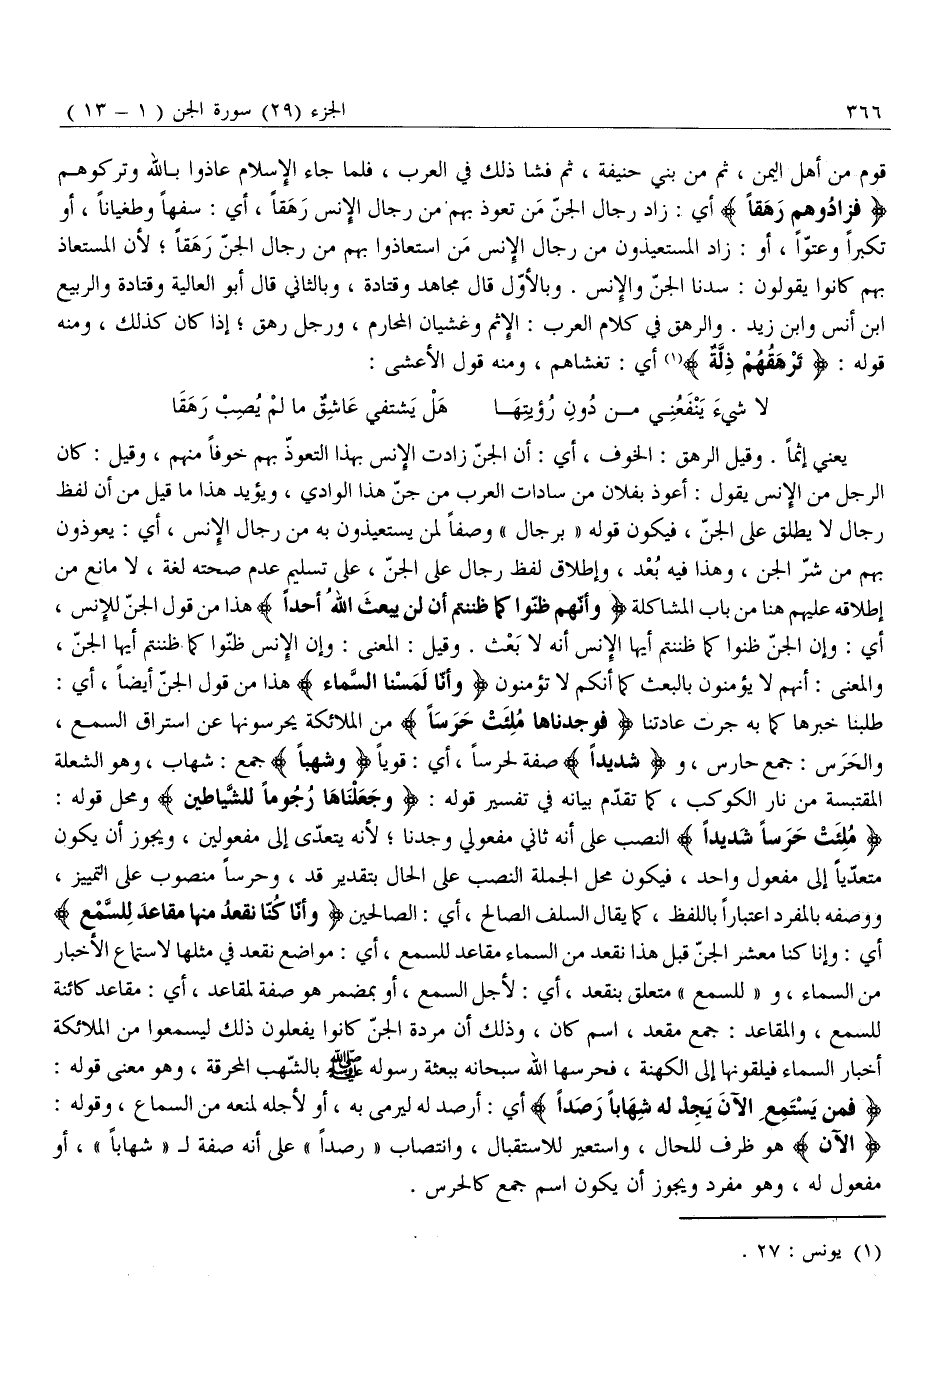 ٣٦٦ الجزء (٢٩) سورة الجن ( ١ – ١٣ )
قوم من أهل اليمن ، ثم من بني حنيفة ، ثم فشا ذلك في العرب ، فلما جاء الإسلام عاذوا بالله وتركوهم
﴿ فزادُوهم رَهَقاً ﴾ أي : زاد رجال الجنّ مَن تعوذ بهم من رجال الإنس رَهَقاً ، أي : سفهاً وطغياناً ، أو
تكبراً وعتوّاً ، أو : زاد المستعيذون من رجال الإنس مَن استعاذوا بهم من رجال الجنّ رَهَقاً ؛ لأن المستعاذ
بهم كانوا يقولون : سدنا الجنّ والإنس . وبالأوّل قال مجاهد وقتادة ، وبالثاني قال أبو العالية وقتادة والربيع
ابن أنس وابن زيد . والرهق في كلام العرب : الإثم وغشيان المحارم ، ورجل رهق ؛ إذا كان كذلك ، ومنه
قوله : ﴿ تَرْهَقُهُمْ ذِلَّةٌ ﴾(١) أي : تغشاهم ، ومنه قول الأعشى :
لا شيءَ يَنْفَعُنِي مـن دُونِ رُؤيتِهَـا هَلْ يَشتفي عَاشِقٌ ما لمْ يُصِبْ رَهَقَا
يعني إثماً . وقيل الرهق : الخوف ، أي : أن الجنّ زادت الإنس بهذا التعوذّ بهم خوفاً منهم ، وقيل : كان
الرجل من الإنس يقول : أعوذ بفلان من سادات العرب من جنّ هذا الوادي ، ويؤيد هذا ما قيل من أن لفظ
رجال لا يطلق على الجنّ ، فيكون قوله « برجال » وصفاً لمن يستعيذون به من رجال الإنس ، أي : يعوذون
بهم من شرّ الجن ، وهذا فيه بُعْد ، وإطلاق لفظ رجال على الجنّ ، على تسليم عدم صحته لغة ، لا مانع من
إطلاقه عليهم هنا من باب المشاكلة ﴿ وأنّهم ظنّوا كما ظننتم أن لن يبعثَ اللهُ أحداً ﴾ هذا من قول الجنّ للإنس ،
أي : وإن الجنّ ظنوا كما ظننتم أيها الإنس أنه لا بَعْث . وقيل : المعنى : وإن الإنس ظنّوا كما ظننتم أيها الجنّ ،
والمعنى : أنهم لا يؤمنون بالبعث كما أنكم لا تؤمنون ﴿ وأنّا لَمَسْنا السَّماء ﴾ هذا من قول الجنّ أيضاً ، أي :
طلبنا خبرها كما به جرت عادتنا ﴿ فوجدناها مُلِئَتْ حَرَسَاً ﴾ من الملائكة يحرسونها عن استراق السمع ،
والحَرَس : جمع حارس ، و ﴿ شديداً ﴾ صفة لحرساً ، أي : قوياً ﴿ وشهباً ﴾ جمع : شهاب ، وهو الشعلة
المقتبسة من نار الكوكب ، كما تقدّم بيانه في تفسير قوله : ﴿ وجَعَلْنَاهَا رُجُوماً للشَّياطين ﴾ ومحل قوله :
﴿ مُلئَتْ حَرَساً شديداً ﴾ النصب على أنه ثاني مفعولي وجدنا ؛ لأنه يتعدّى إلى مفعولين ، ويجوز أن يكون
متعدّياً إلى مفعول واحد ، فيكون محل الجملة النصب على الحال بتقدير قد ، وحرساً منصوب على التمييز ،
ووصفه بالمفرد اعتباراً باللفظ ، كما يقال السلف الصالح ، أي : الصالحين ﴿ وأنّا كُنّا نقعدُ منها مقاعدَ لِلسَّمْعِ ﴾
أي : وإنا كنا معشر الجنّ قبل هذا نقعد من السماء مقاعد للسمع ، أي : مواضع نقعد في مثلها لاستماع الأخبار
من السماء ، و « للسمع » متعلق بنقعد ، أي : لأجل السمع ، أو بمضمر هو صفة لمقاعد ، أي : مقاعد كائنة
للسمع ، والمقاعد : جمع مقعد ، اسم كان ، وذلك أن مردة الجنّ كانوا يفعلون ذلك ليسمعوا من الملائكة
أخبار السماء فيلقونها إلى الكهنة ، فحرسها الله سبحانه ببعثة رسوله ﷺ بالشّهب المحرقة ، وهو معنى قوله :
﴿ فمن يَسْتَمِعِ الآنَ يَجِدْ له شِهَاباً رَصَداً ﴾ أي : أرصد له ليرمى به ، أو لأجله لمنعه من السماع ، وقوله :
﴿ الآن ﴾ هو ظرف للحال ، واستعير للاستقبال ، وانتصاب « رصداً » على أنه صفة لـ « شهاباً » ، أو
مفعول له ، وهو مفرد ويجوز أن يكون اسم جمع كالحرس .
(١) يونس : ٢٧ .